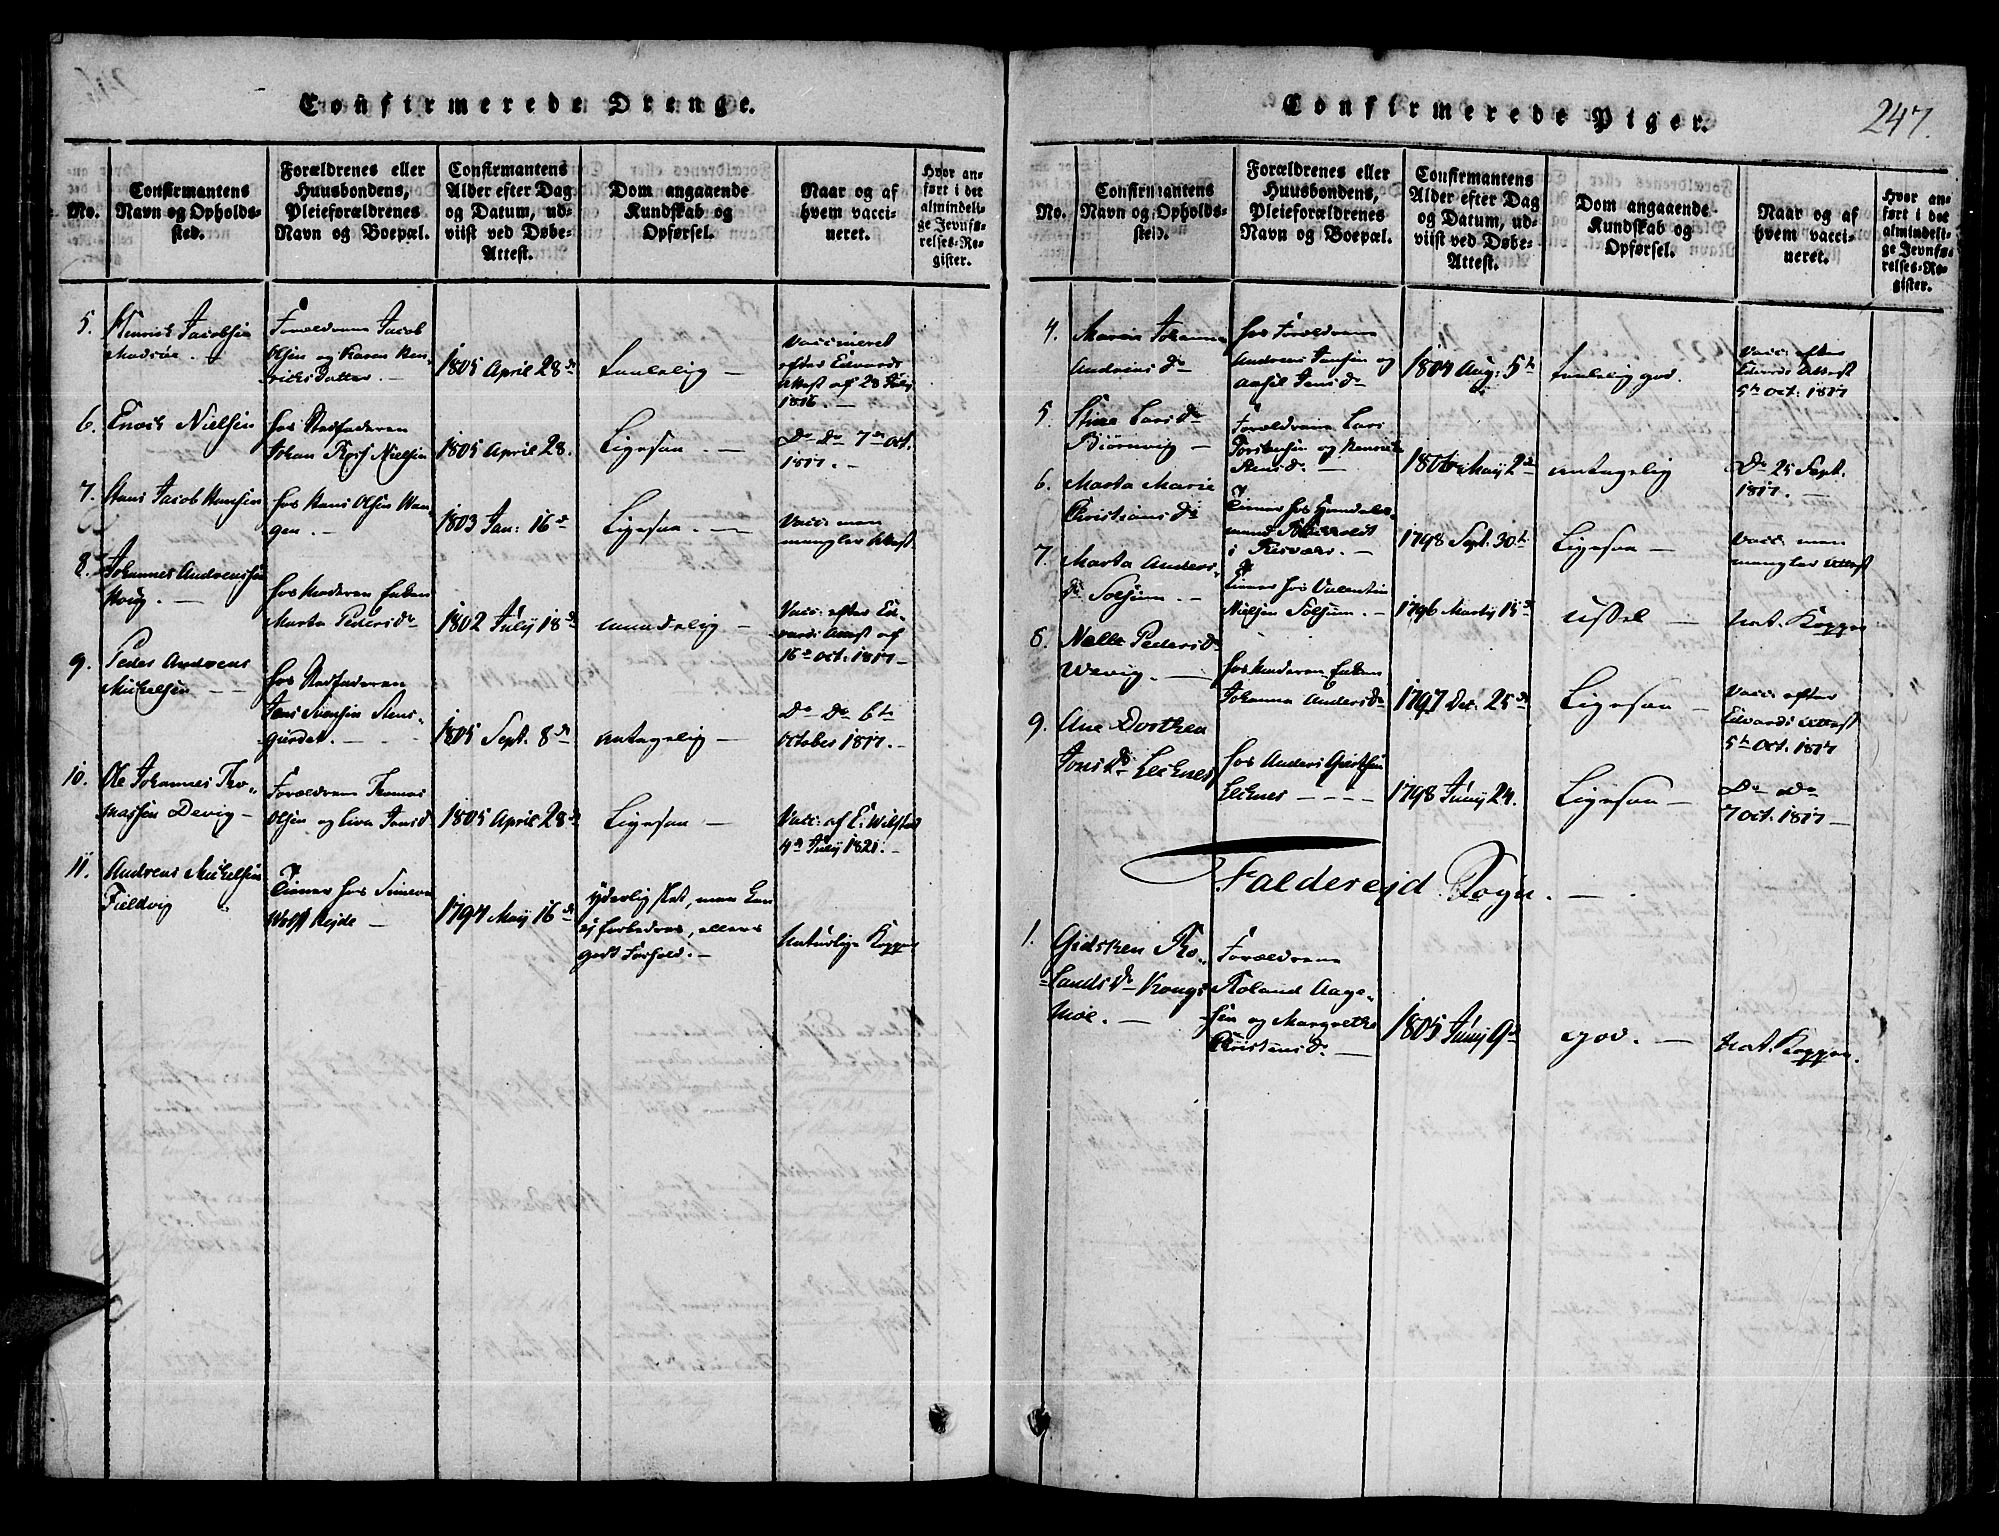 Confirmerede Drenge.
No.
Confirmantens
Navn og Opholds-
sted.
Forældrenes eller
Huusbondens,
Pleieforældrenes
Navn og Boepæl.
Confirmantens
Alder efter Dag
og Datum, ud-
viist ved Døbe-
Attest.
Dom angaaende
Kundskab og
Opførsel.
Naar og af
hvem vacci-
neret.
Hvor an-
ført i det
almindeli-
ge Jevnfø-
relses-Re-
gister.
5.
Henrich Jacobsen
Forældrene Jacob
Olsen og Karen Hen-
richs Datter. —
1805 April 28de
taalelig —
Vaccineret
efter Edvards
Attest af 28 July
1816. —
6.
Enoch Nielsen
hos Stedfaderen
Johan Nielsen
1805 April 28.
Ligesaa. —
Do Do 7de Oct.
1817. —
7.
Hans Jacob Hansen
hos Hans Olsen Han-
gen. —
1803 Jan: 16de
Ligesaa. —
Vacc: men
mangler Attest
8.
Johannes Andreassen
Hoig. —
hos Moderen Enken
Marta Pedersdr
1802 July 18de
maadelig —
Vacc: efter Ed-
vards Attest af
16de Oct. 1817 —
9.
Peder Andreas
Michelsen — —
hos Stedfaderen
Jens Svensen Stens-
gurdet. —
1805 Sept. 8de
antagelig —
Do Do 6te
October 1817. —
10.
Ole Johannes Tho-
massen Devig —
Forældrene Thomas
Olsen og Liva Jonsd
1805 April 28de
Ligesaa —
Vacc: af E. Wilstad
4de July 1821. —
11.
Andreas Michelsen
Fieldvig
Tiener hos Simeon
Wolff Rejde —
1794 May 16de
yderlig slet, men kan
ej forbedres, ellers
godt Forhold. —
Naturlige Kopper
Confirmerede Piger.
247.
No.
Confirmantens
Navn og Opholds-
sted.
Forældrenes eller
Huusbondens,
Pleieforældrenes
Navn og Boepæl.
Confirmantens
Alder efter Dag
og Datum, ud-
viist ved Døbe-
Attest.
Dom angaaende
Kundskab og
Opførsel.
Naar og af
hvem vacci-
neret.
Hvor an-
ført i det
almindeli-
ge Jevnfø-
relses-Re-
gister.
4.
Maren Johanna
Andreas dr
hos Forældrene
Andreas Jansen og
Aasel Jensdr
1804 Aug: 5te
taalelig god.
Vacc: efter
Edvards Attest
5te Oct: 1817
5.
Stine Larsdr
Biørnvig —
Forældrene Lars
Torstensen og
1801 May 2de
antagelig
Do 25 Sept.
1817. —
6.
Marta Marie
Christiansdr
Tiener hos Handels-
mand
i Trævær. —
1798 Sept. 30te
Ligesaa —
Vacc: men
mangler Attest
7.
Marta Anders-
dr Solsem. —
Tiener hos Valentin
Nielsen Solsem. —
1796 Marty 15de
ussel —
Nat. Kopper
8.
Nelle Pedersdr
Wevig. —
hos Moderen Enken
Johanna Andersdr
1797 Dec. 25de
Ligesaa —
Vacc: efter
Edvards Attest
5te Oct. 1817
9.
Ane Dorthea
Jonsdr Leknes
hos Anders
Leknes — — — —
1798 Juny 24.
Ligesaa —
Do Do
7 Oct. 1817 —
Faldereid Sogn. —
1.
Gidsken Ro-
landsdr Kongs-
moe. —
Forældrene
Roland Aage-
sen og Margrethe
Christensdr —
1805 Juny 9de
god. —
Nat. Kopper.